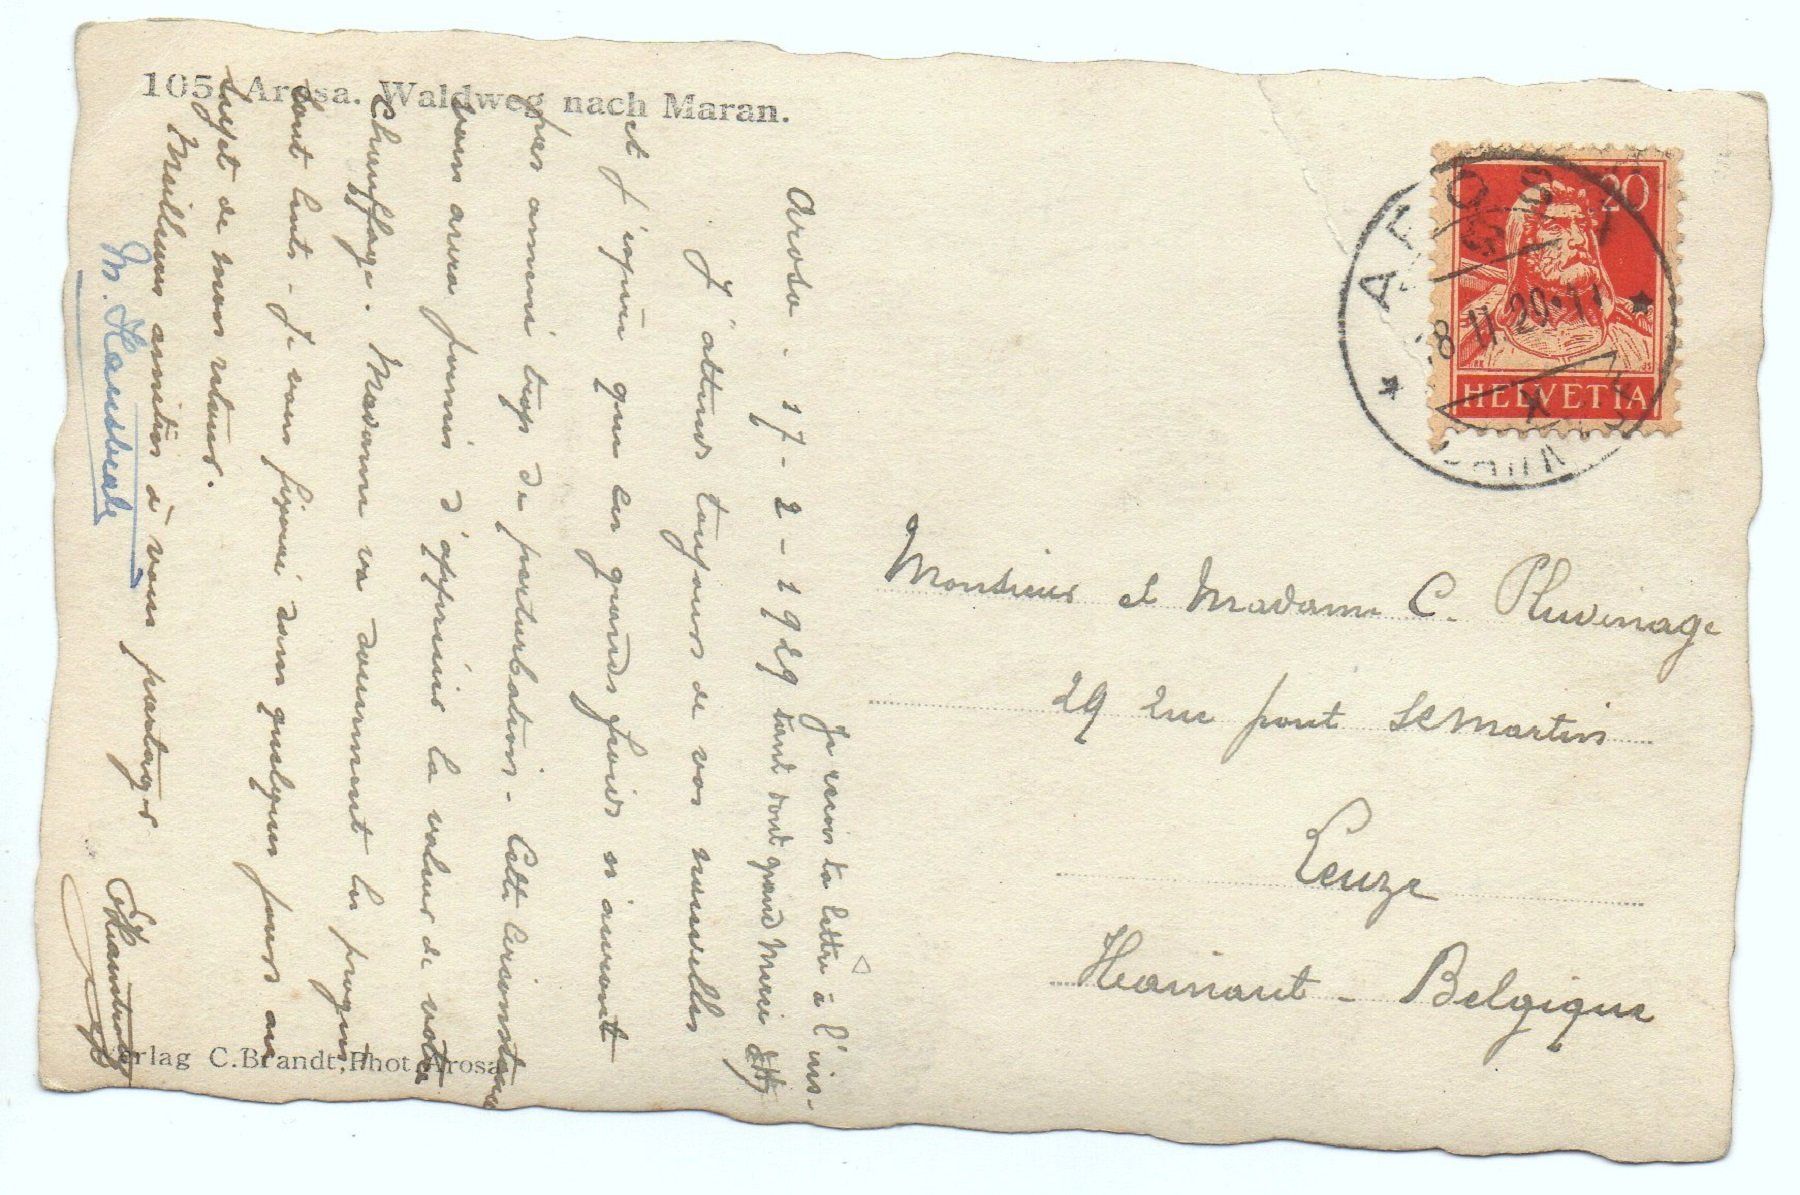 105. Arosa. Waldweg nach Maran.
Arosa. 17-2-1929
J'attends toujours de vos nouvelles
et j'espère que les grands froids n'auront
pas amené trop de perturbation - Cette circonstance
vous aura permis d'apprécier la valeur de votre
chauffage. Madame va doucement les progrès
sont lents - Je serai fixé dans quelques jours au
sujet de mon retour.
Meilleures amitiés à vous partager
Je reçois ta lettre à l'ins-
tant dont grand Merci
HELVETIA
20
AROSA
18.II.29.11
Monsieur et Madame C. Pluvinage
29 rue pont St Martin
Leuze
Hainaut - Belgique
Verlag C. Brandt, Phot. Arosa